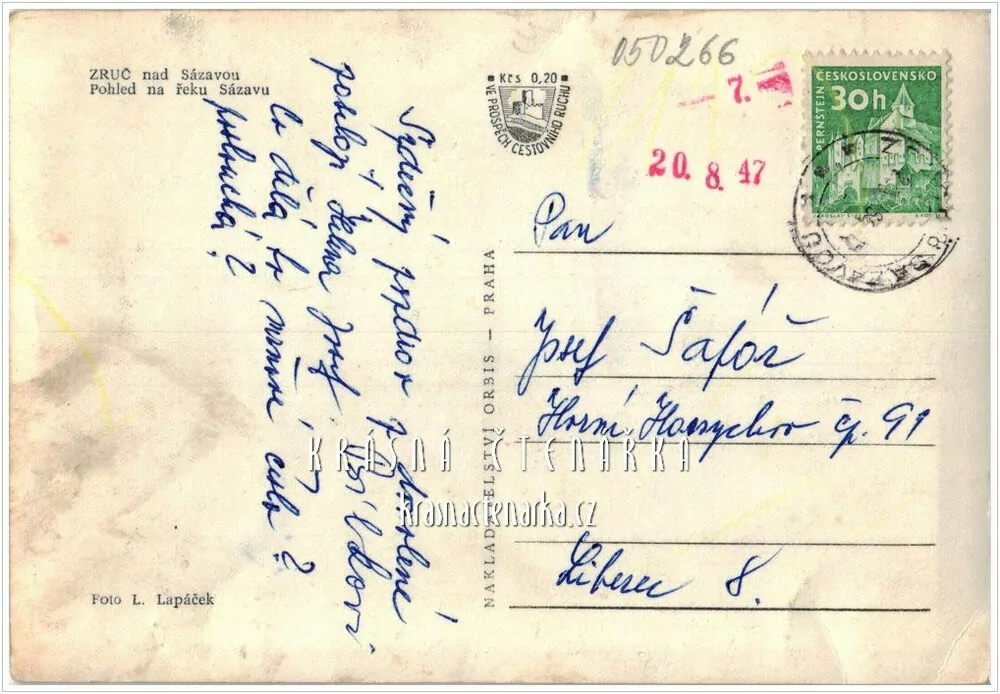 ZRUČ nad Sázavou
Pohled na řeku Sázavu
050266
Kčs 0,20
VE PROSPĚCH CESTOVNÍHO RUCHU
7.
20. 8. 47
ČESKOSLOVENSKO
30h
PERNŠTEJN
SÁZAVOU
Srdečný pozdrav z dovolené
posílají Helena Josef
Co dělá to
cuba?
poslouchá?
NAKLADATELSTVÍ ORBIS – PRAHA
Pan
Josef Šafář
Horní čp. 91
Liberec 8.
KRÁSNÁ ČTENÁŘKA
krasnactenarka.cz
Foto L. Lapáček